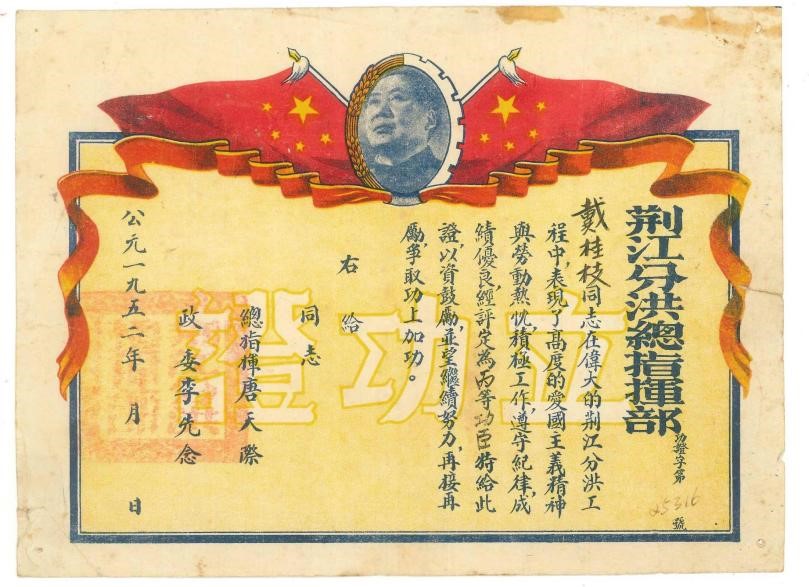 荆江分洪總指揮部
功證字第25316號
戴桂枝同志在偉大的荆江分洪工
程中，表現了高度的愛國主義精神
與勞動熱忱，積極工作，遵守紀律，成
績優良，經評定為丙等功臣特給此
證，以資鼓勵，並望繼續努力，再接再
勵，爭取功上加功。
右給
同志
總指揮唐天際
政委李先念
公元一九五二年 月 日
立功證